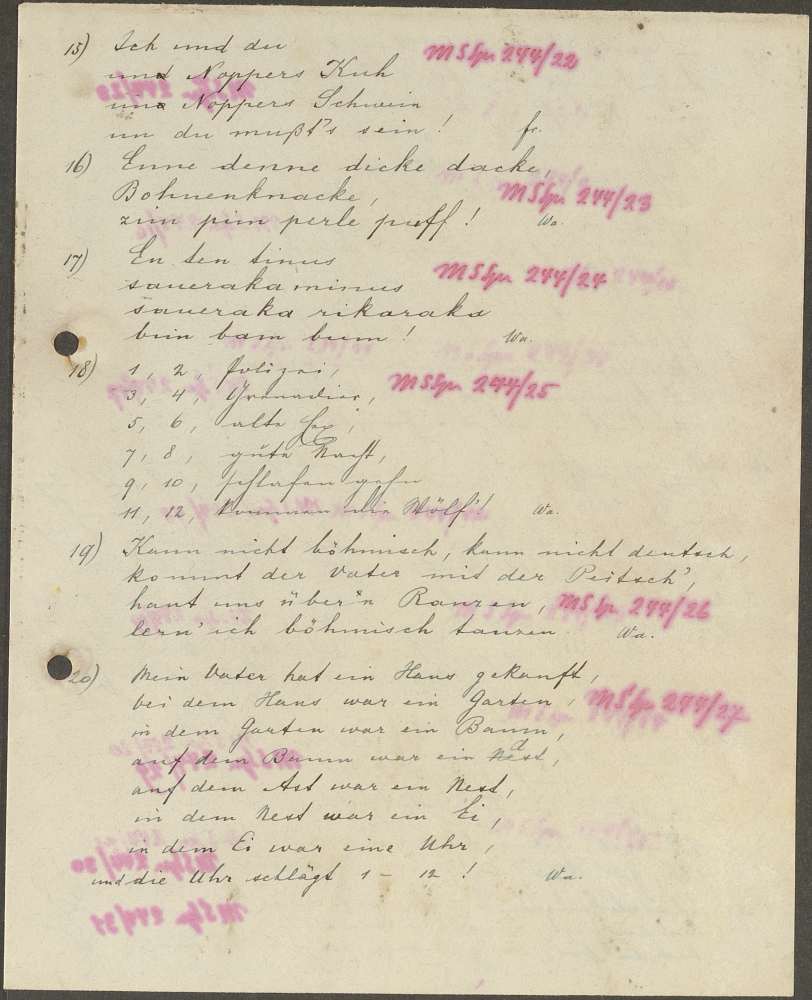 15) Ich und du MSSpr 244/22
und Noppers Kuh
und Noppers Schwein
un du mußt's sein! fr.
16) Enne denne dicke dacke,
Bohnenknacke, MSSpr 244/23
zim pim perle puff! Wa.
17) En ten tinus MSSpr 244/24
saueraka minus
saueraka rikaraka
bim bam bum! Wa.
18) 1, 2, Polizei,
3, 4, Grenadier, MSSpr 244/25
5, 6, alte Hex,
7, 8, gute Nacht,
9, 10, schlafen gehn
11, 12, kommen die Wölf'! Wa.
19) Kann nicht böhmisch, kann nicht deutsch,
kommt der Vater mit der Peitsch',
haut uns über'n Ranzen, MSSpr 244/26
lern' ich böhmisch tanzen. Wa.
20) Mein Vater hat ein Haus gekauft,
bei dem Haus war ein Garten, MSSpr 244/27
in dem Garten war ein Baum,
auf dem Baum war ein
auf dem Ast war ein Nest,
in dem Nest war ein Ei,
in dem Ei war eine Uhr,
und die Uhr schlägt 1 - 12! Wa.